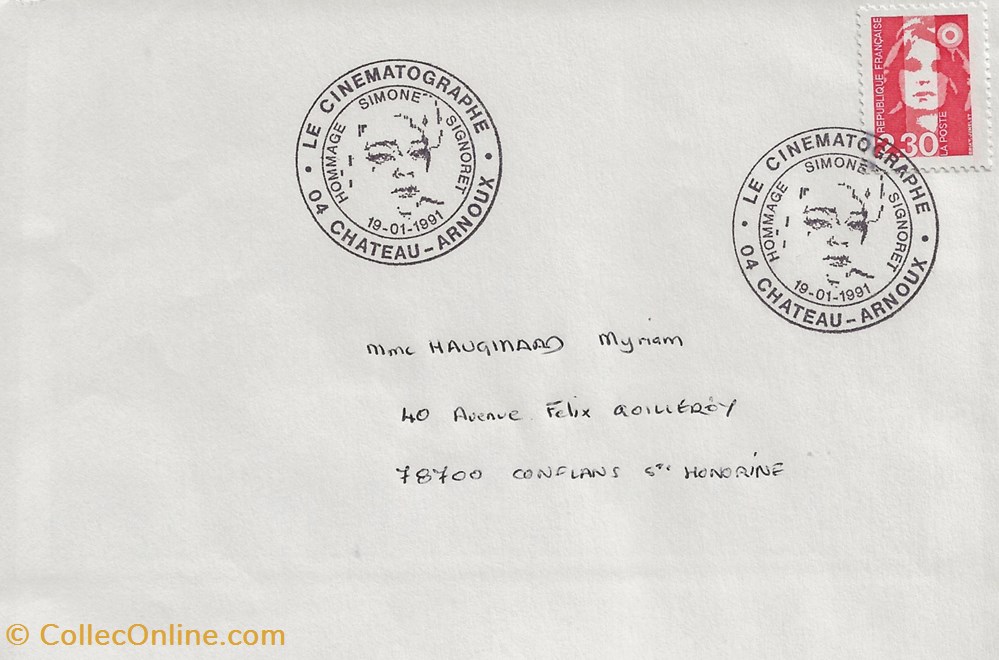 REPUBLIQUE FRANÇAISE
2,30
LA POSTE
LE CINEMATOGRAPHE
HOMMAGE SIMONE SIGNORET
19-01-1991
04 CHATEAU-ARNOUX
LE CINEMATOGRAPHE
HOMMAGE SIMONE SIGNORET
19-01-1991
04 CHATEAU-ARNOUX
Mme Myriam
40 Avenue Felix QOILLÉROY
78700 CONFLANS Ste HONORINE
© CollecOnline.com